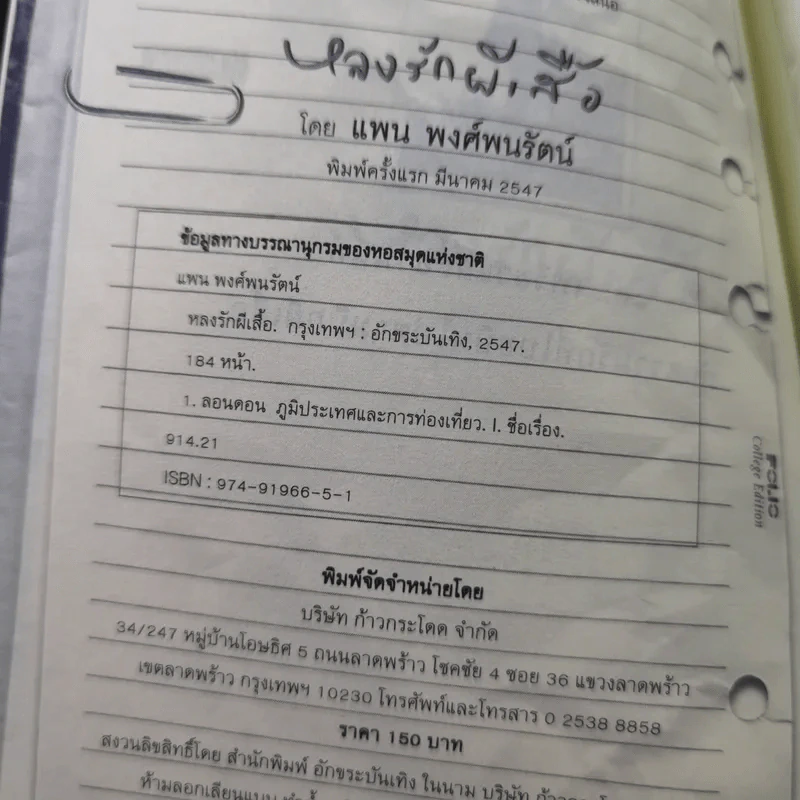 หลงรักผีเสื้อ
โดย แพน พงศ์พนรัตน์
พิมพ์ครั้งแรก มีนาคม 2547
ข้อมูลทางบรรณานุกรมของหอสมุดแห่งชาติ
แพน พงศ์พนรัตน์
หลงรักผีเสื้อ. กรุงเทพฯ : อักขระบันเทิง, 2547.
184 หน้า.
1. ลอนดอน ภูมิประเทศและการท่องเที่ยว. I. ชื่อเรื่อง.
914.21
ISBN : 974-91966-5-1
FOLIO
College Edition
พิมพ์จัดจำหน่ายโดย
บริษัท ก้าวกระโดด จำกัด
34/247 หมู่บ้านโอษธิศ 5 ถนนลาดพร้าว โชคชัย 4 ซอย 36 แขวงลาดพร้าว
เขตลาดพร้าว กรุงเทพฯ 10230 โทรศัพท์และโทรสาร 0 2538 8858
ราคา 150 บาท
สงวนลิขสิทธิ์โดย สำนักพิมพ์ อักขระบันเทิง ในนาม บริษัท
ห้ามลอกเลียนแบบ